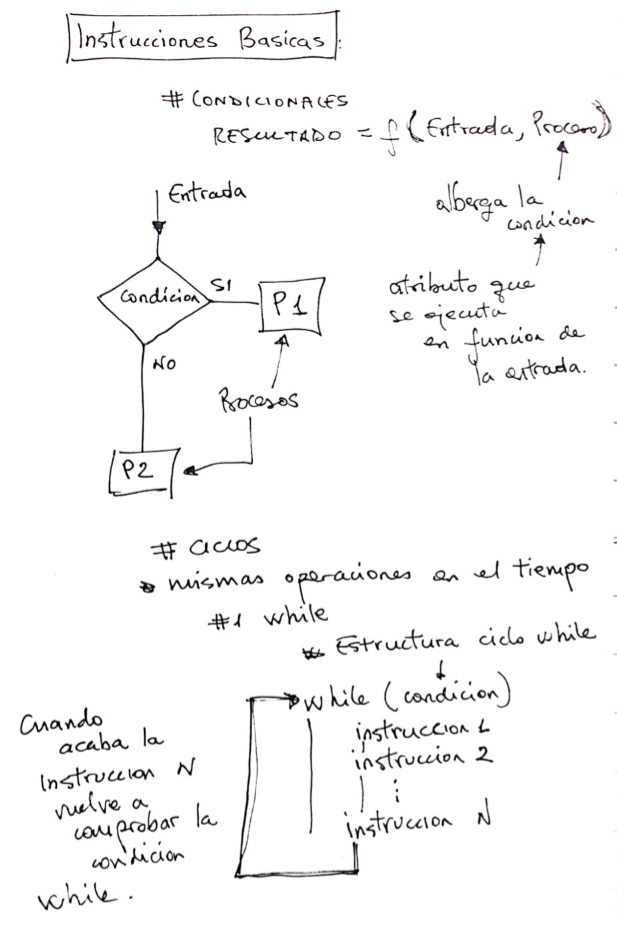 Instrucciones Basicas:
# CONDICIONALES
RESULTADO = f (Entrada, Proceso)
Entrada
alberga la
condicion
Condicion
SI
P1
atributo que
se ejecuta
en funcion de
la entrada.
NO
Procesos
P2
# CICLOS
mismas operaciones en el tiempo
#1 while
Estructura ciclo while
while (condicion)
instruccion 1
instruccion 2
⋮
instruccion N
Cuando
acaba la
Instruccion N
vuelve a
comprobar la
condicion
while.